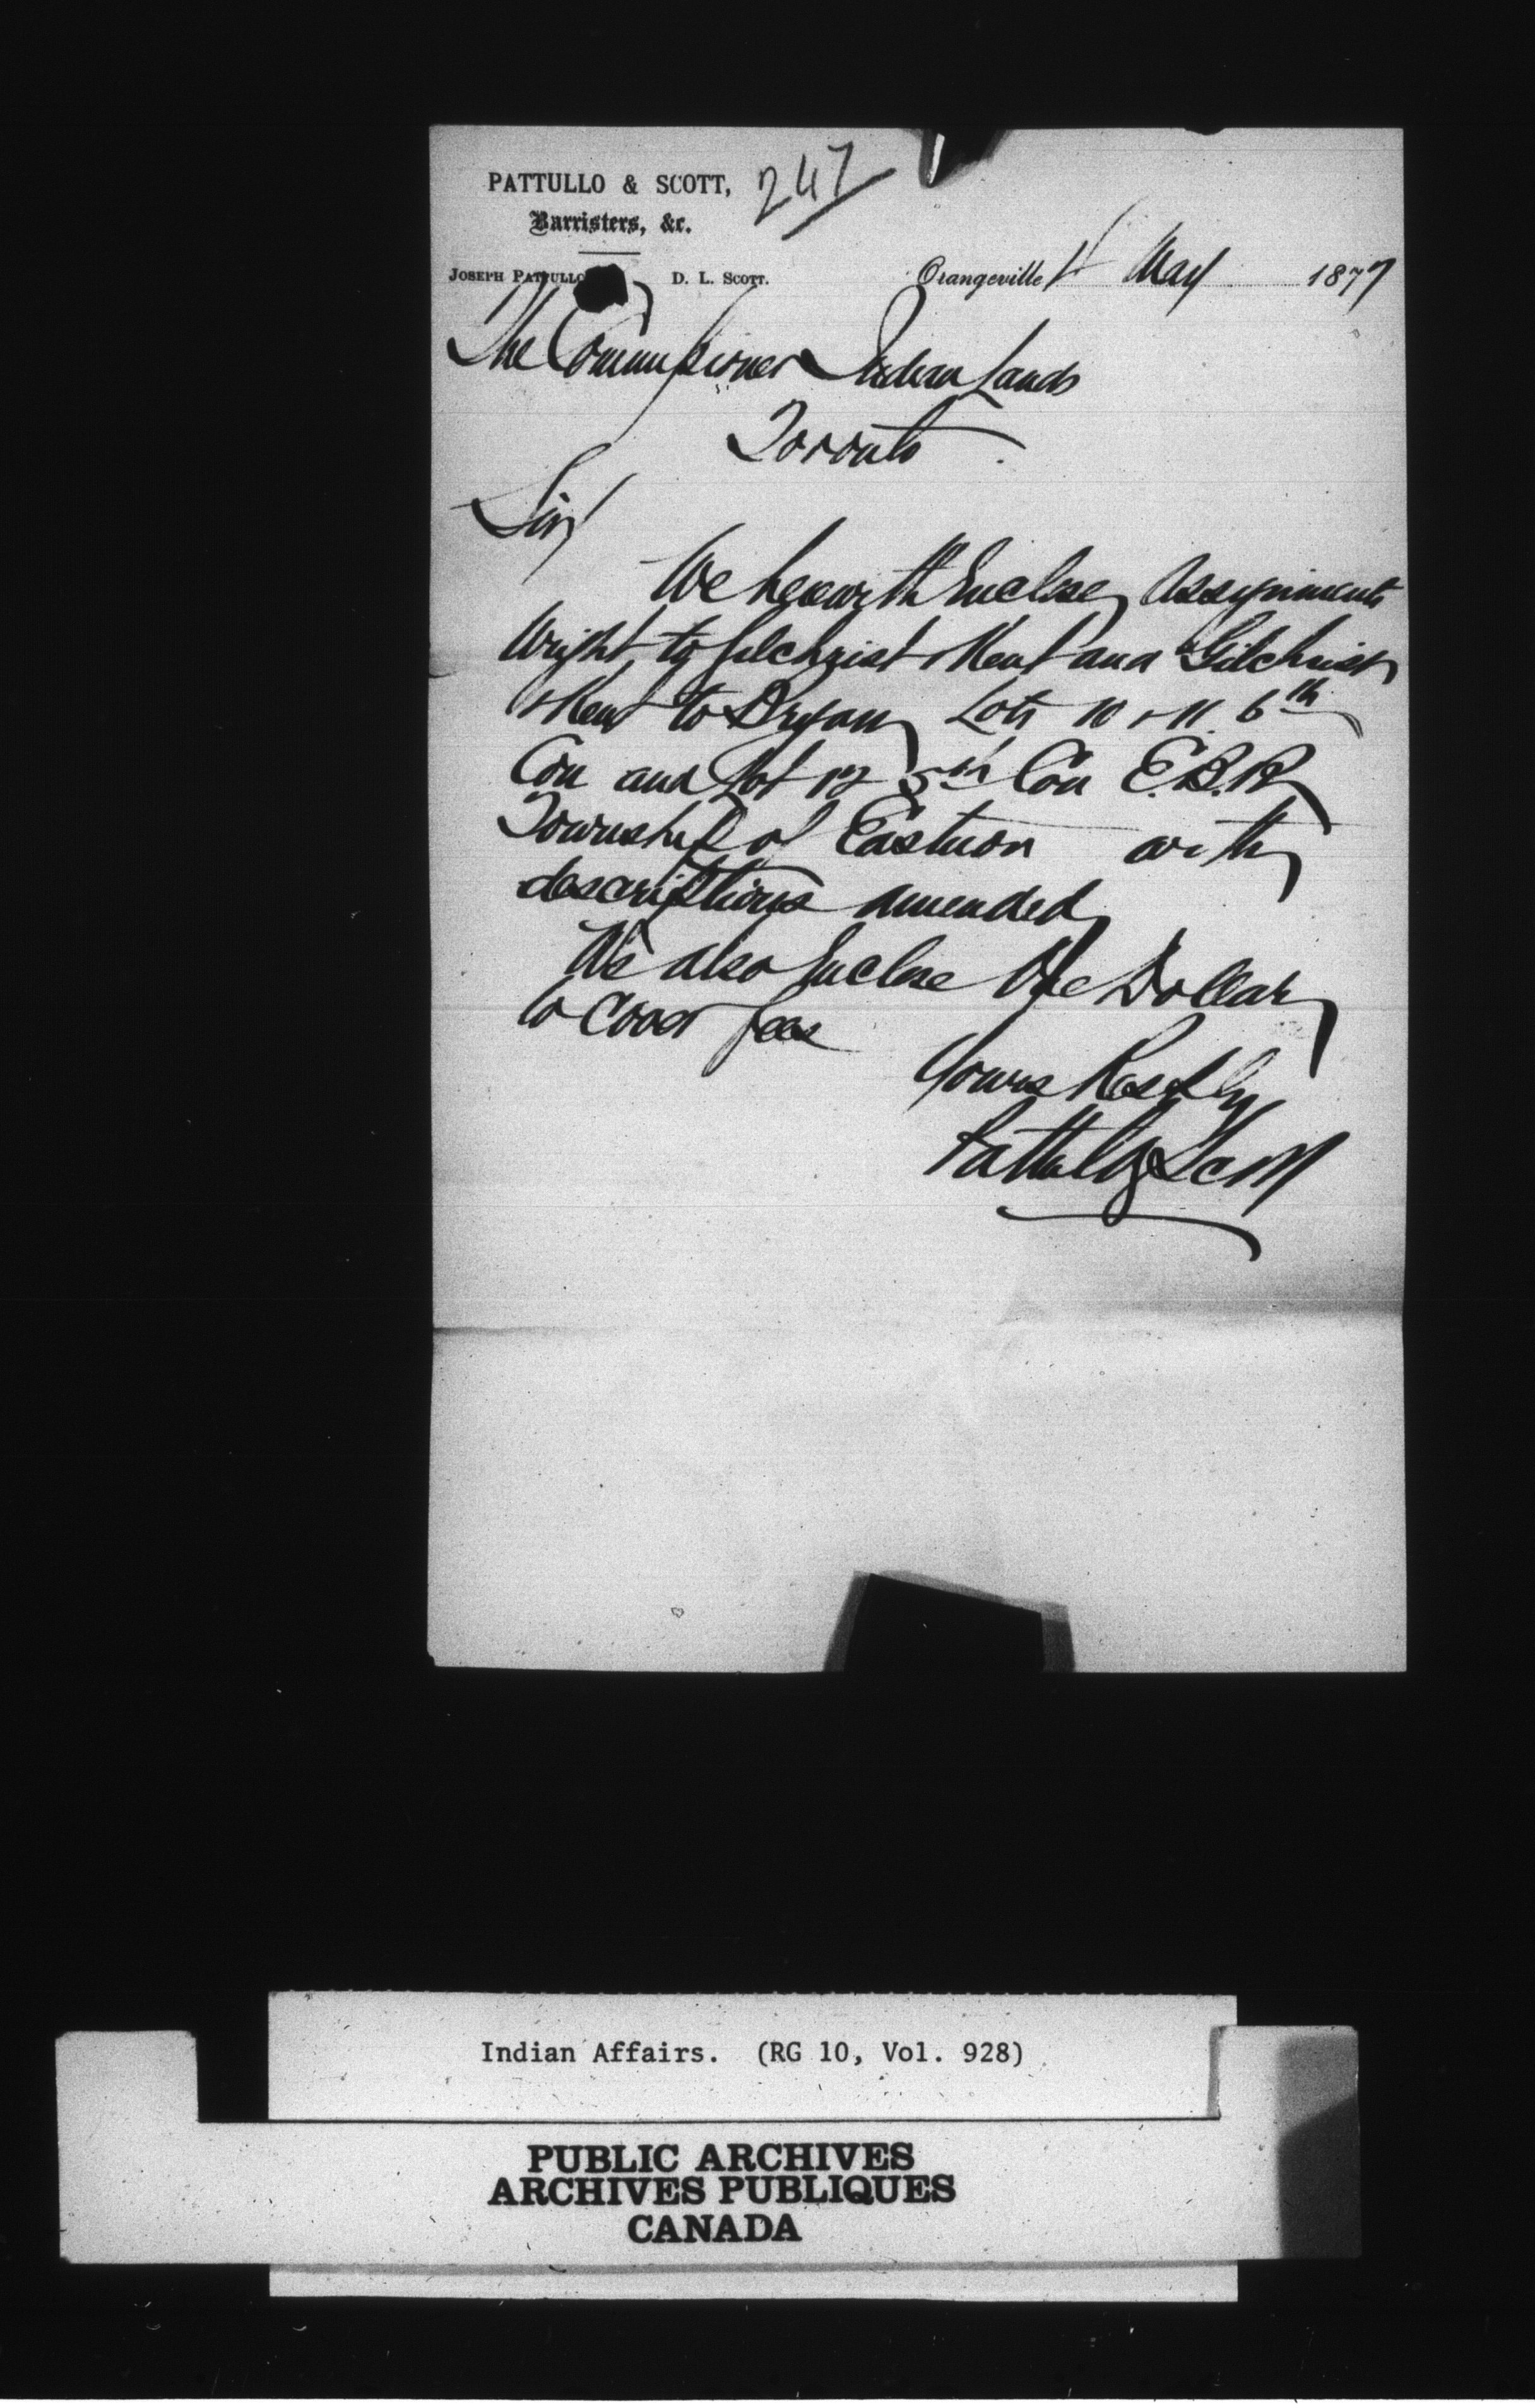 PATTULLO & SCOTT,
247
Barristers, &c.
JOSEPH PATTULLO D. L. SCOTT.
Orangeville 1st May 1877
The Commissioner Indian Lands
Toronto
Sir
We herewith Enclose Assignments
Wright to Gilchrist & Kent and Gilchrist
& Kent to Bryan Lots 10 & 11. 6th
Con and Lot 12 5th Con E.B.R
Township of Eastnor with
descriptions amended
We also Enclose One Dollar
to cover fees
Yours Respfly
Pattullo & Scott
Indian Affairs. (RG 10, Vol. 928)
PUBLIC ARCHIVES
ARCHIVES PUBLIQUES
CANADA